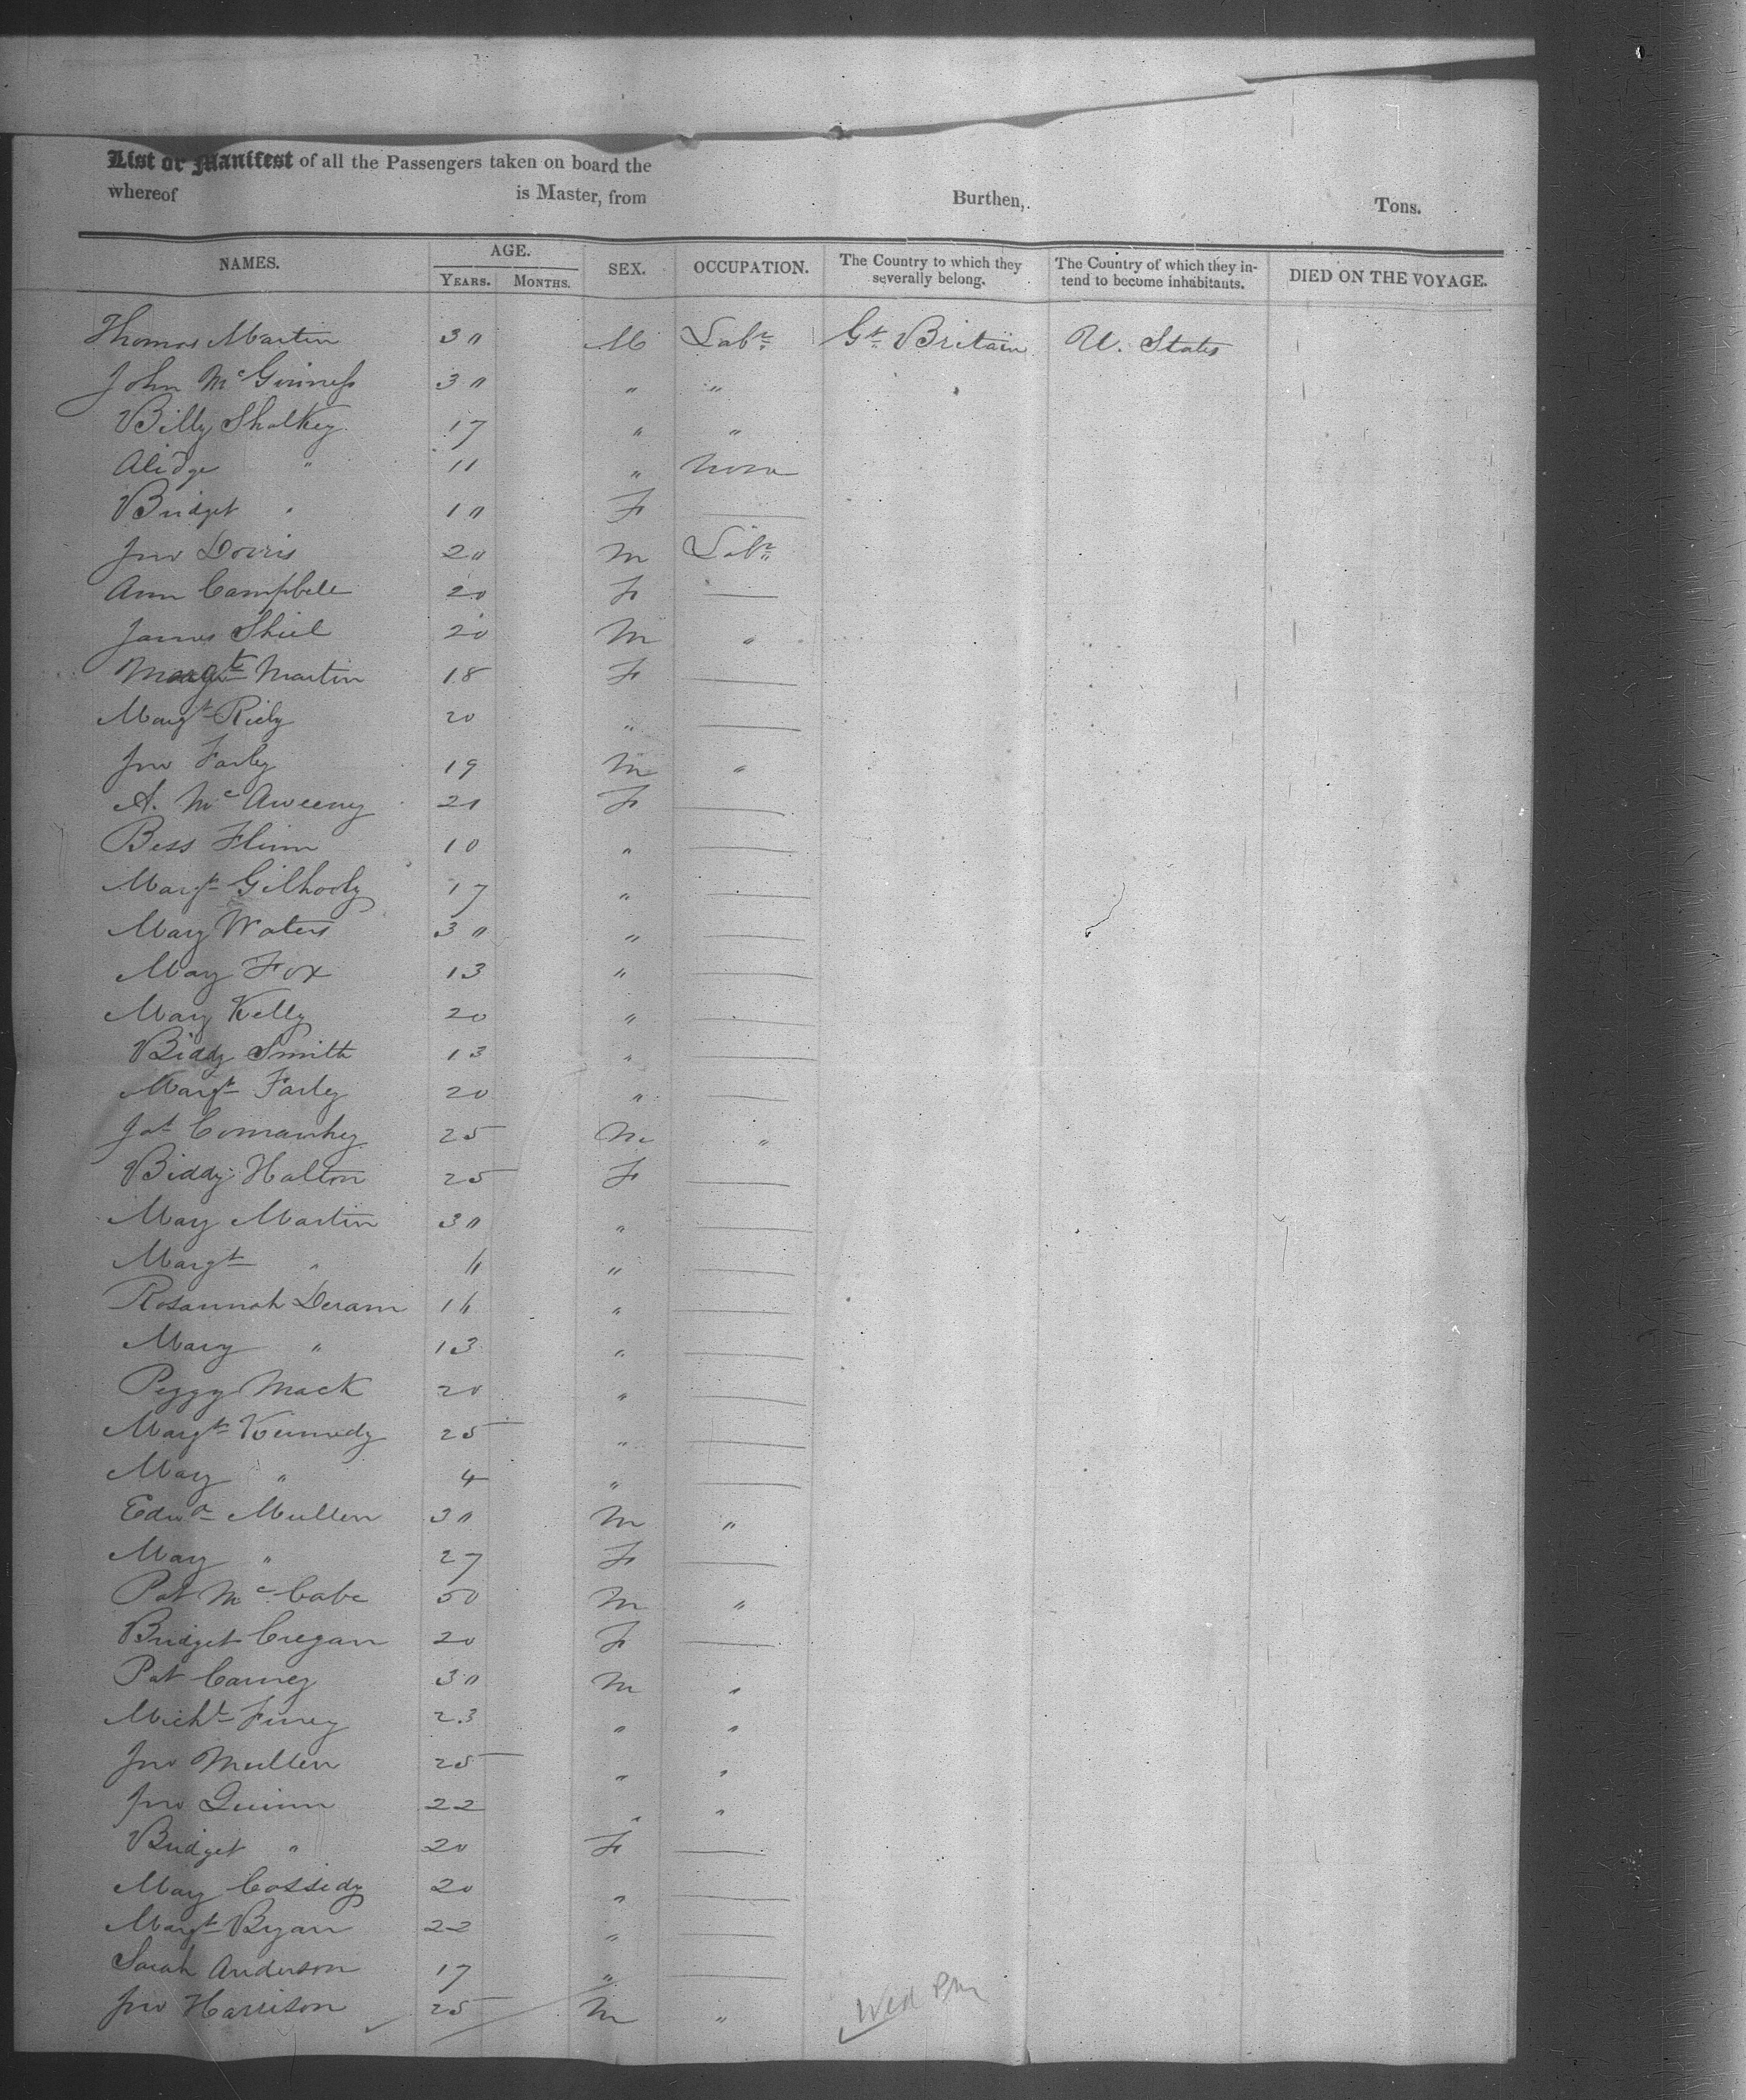 List or Manifest of all the Passengers taken on board the
whereof is Master, from Burthen, Tons.
NAMES. AGE. SEX. OCCUPATION. The Country to which they severally belong. The Country of which they intend to become inhabitants. DIED ON THE VOYAGE.
YEARS. MONTHS.
Thomas Martin 30 M Labr Gt Britain U. States
John McGinness 30 " "
Billy Sholkey 17 " "
Alidge " 11 " None
Bridget " 10 F
Jno Dorris 20 M Labr
Ann Campbell 20 F
James Shiel 20 M "
Margt Martin 18 F
Margt Riely 20 "
Jno Farley 19 M "
A. McAweeny 21 F
Bess Flinn 10 "
Margt Gilhooly 17 "
Mary Waters 30 "
Mary Fox 13 "
Mary Kelly 20 "
Biddy Smith 13 "
Margt Farley 20 "
25 M "
Biddy Halton 25 F
Mary Martin 30 "
Margt " "
Rosannah Deram "
Mary " 13 "
Peggy Mack 20 "
Margt Kennedy 25 "
Mary " 4 "
Edwd Mullen 30 M "
Mary " 27 F
Pat McCabe 50 M "
Bridget Cregan 20 F
Pat Carney 30 M "
Michl Furey 23 " "
Jno Mullen 25 " "
Jno Quinn 22 " "
Bridget " 20 F
Mary Cassidy 20 "
Margt Bryan 22 "
Sarah Anderson 17 "
Jno Harrison 25 M "